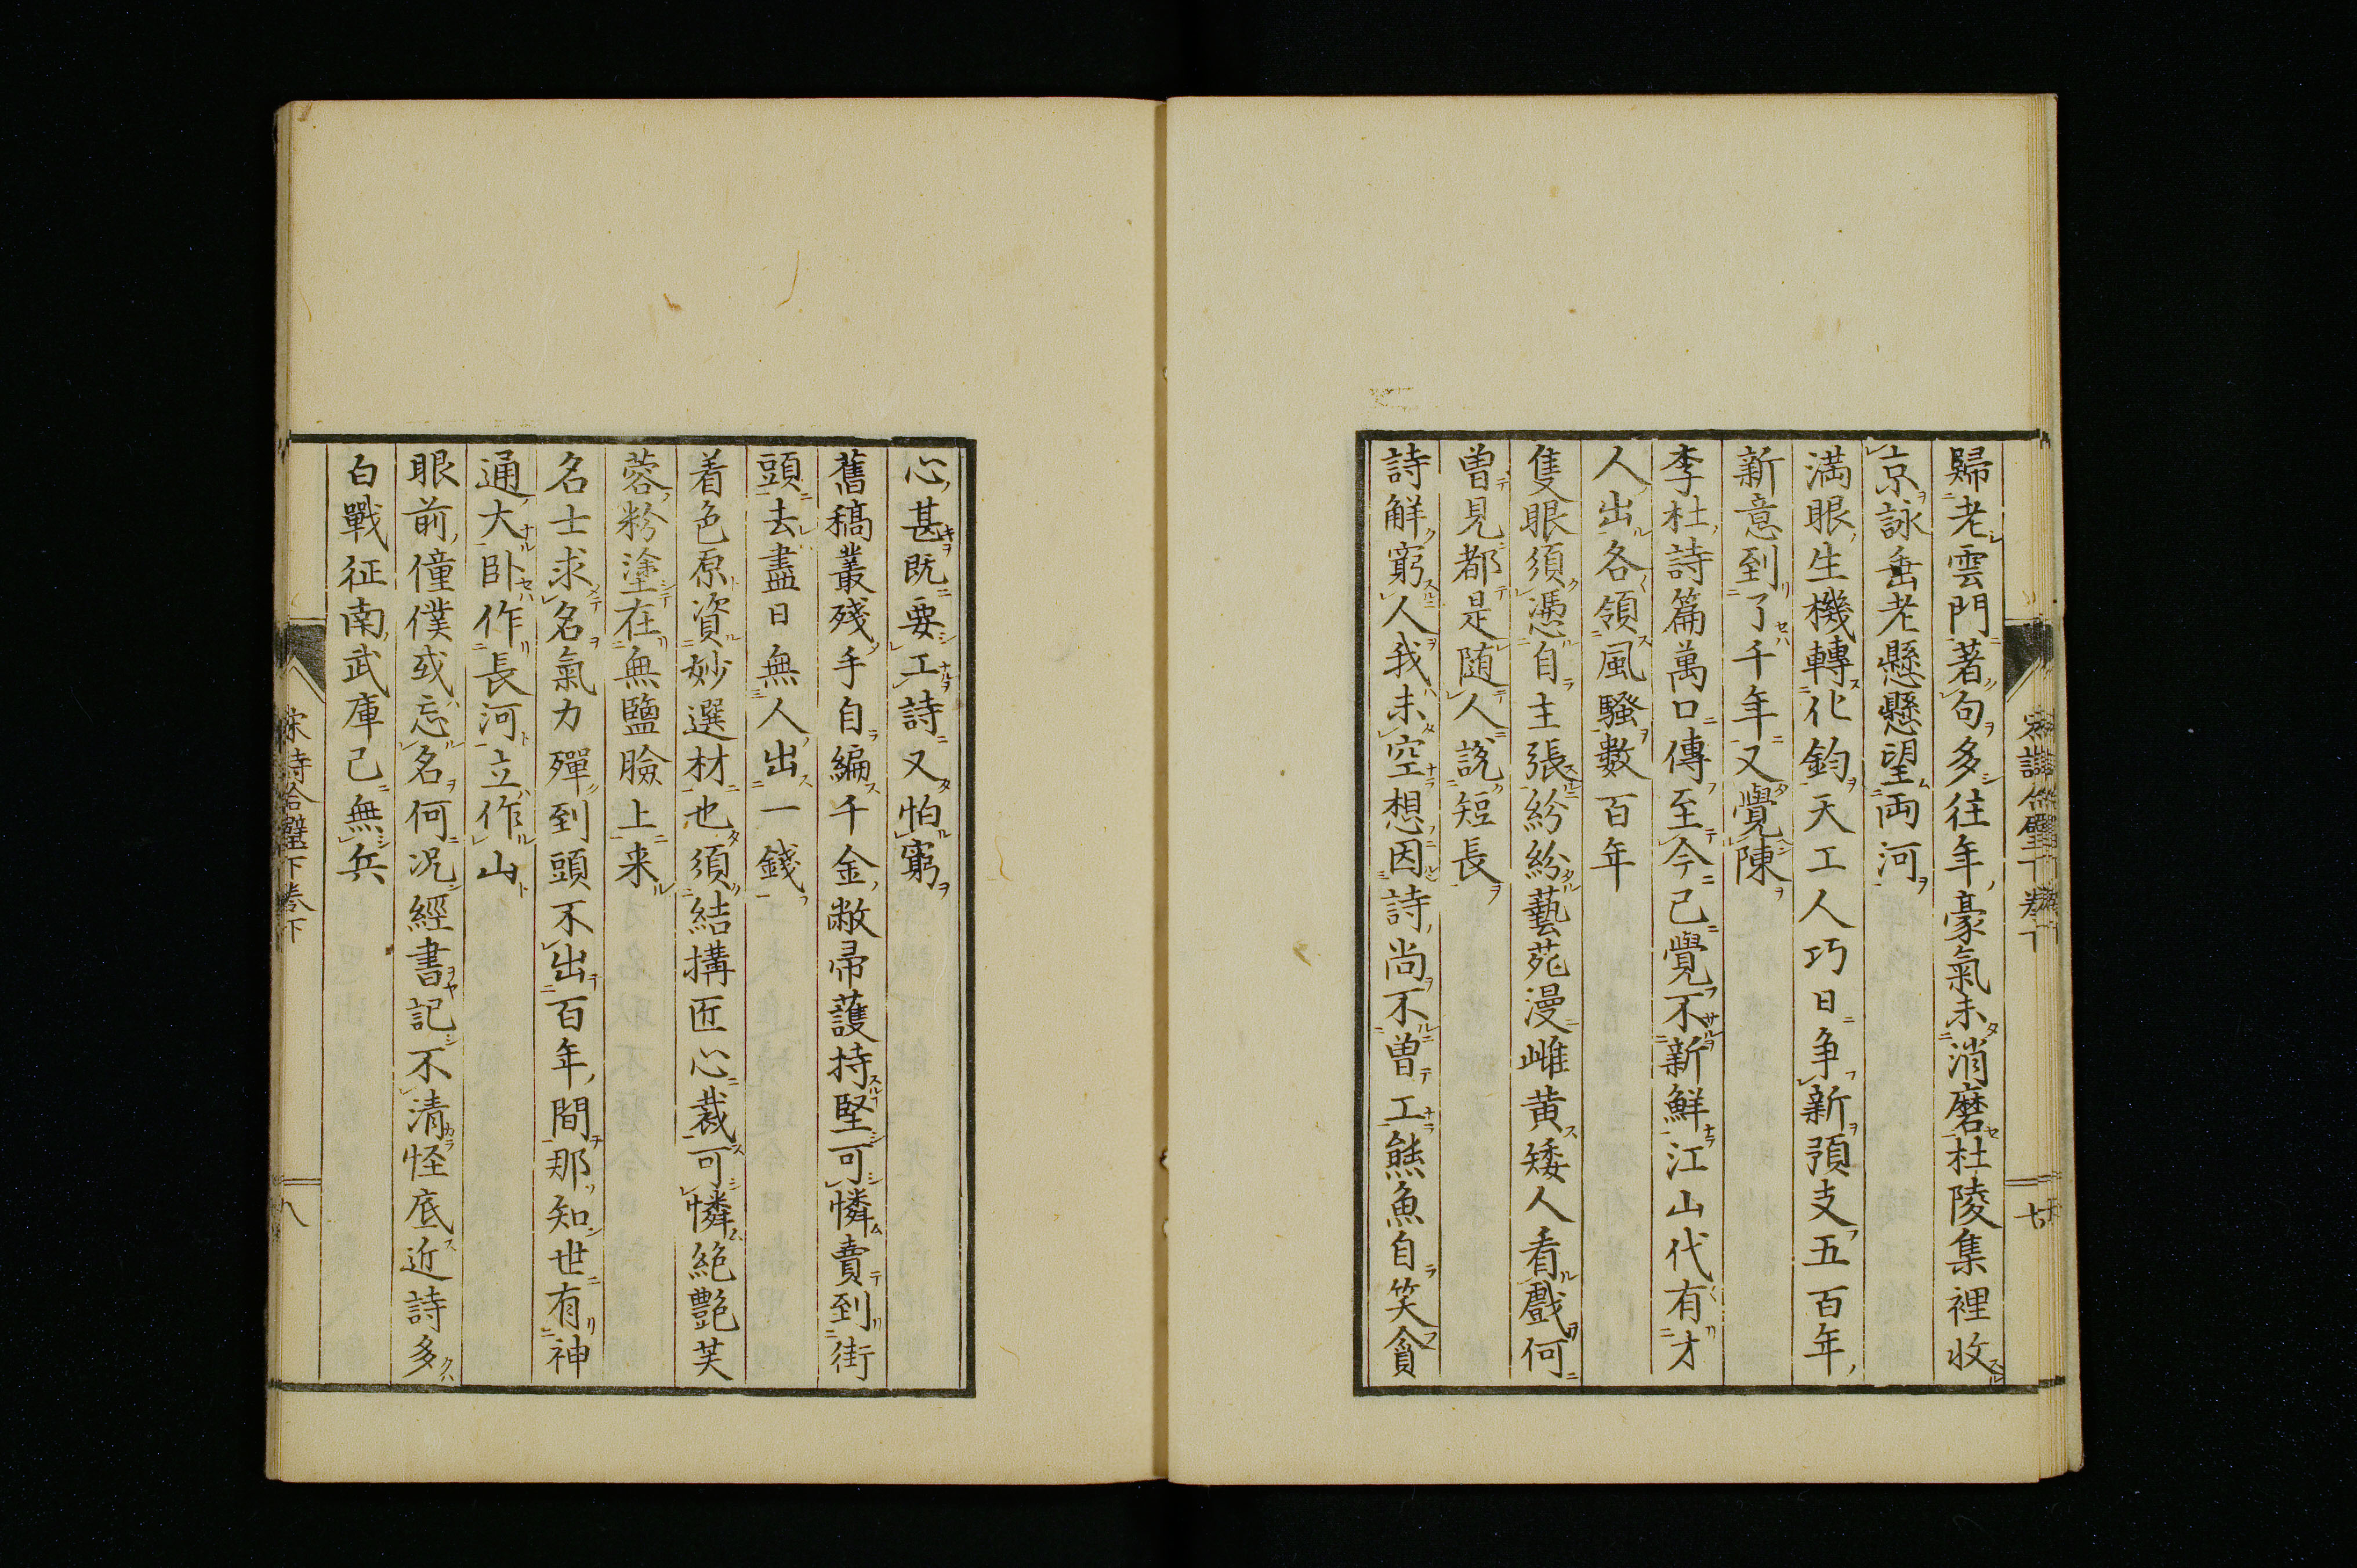 歸老雲門著句多往年豪氣未消磨杜陵集裡收
京詠垂老懸懸望両河
満眼生機轉化鈞天工人巧日争新預支五百年
新意到了千年又覺陳
李杜詩篇萬口傳至今已覺不新鮮江山代有才
人出各領風騷數百年
隻眼須憑自主張紛紛藝苑漫雌黄矮人看戲何
曽見都是随人說短長
詩解窮人我未空想因詩尚不曽工熊魚自笑貪
心甚既要工詩又怕窮
舊稿叢殘手自編千金敝帚護持堅可憐賣到街
頭去盡日無人出一錢
着色原資妙選材也須結搆匠心裁可憐絶艷芙
蓉粉塗在無鹽臉上来
名士求名氣力殫到頭不出百年間那知世有神
通大卧作長河立作山
眼前僮僕或忘名何况經書記不清怪底近詩多
白戰征南武庫已無兵
宋詩合璧下巻下
八